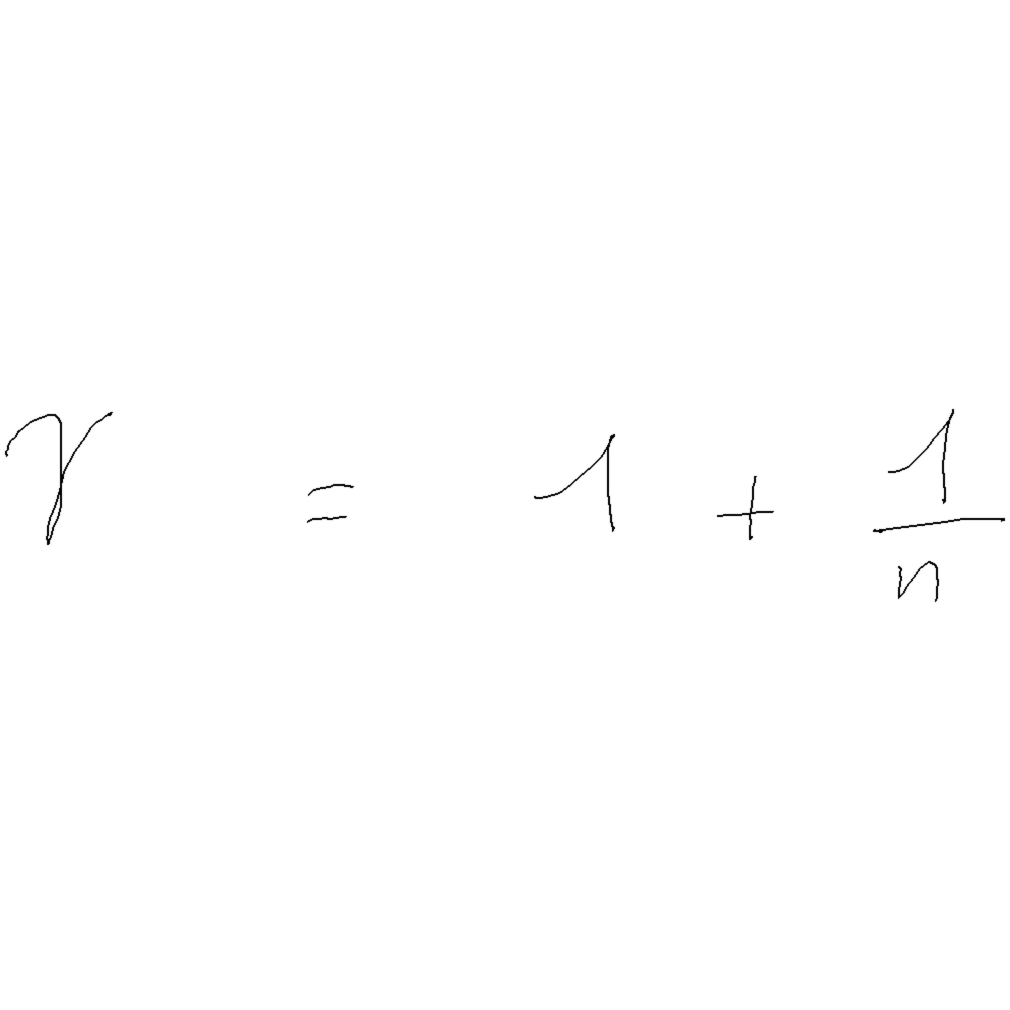 γ = 1 + \frac{1}{n}